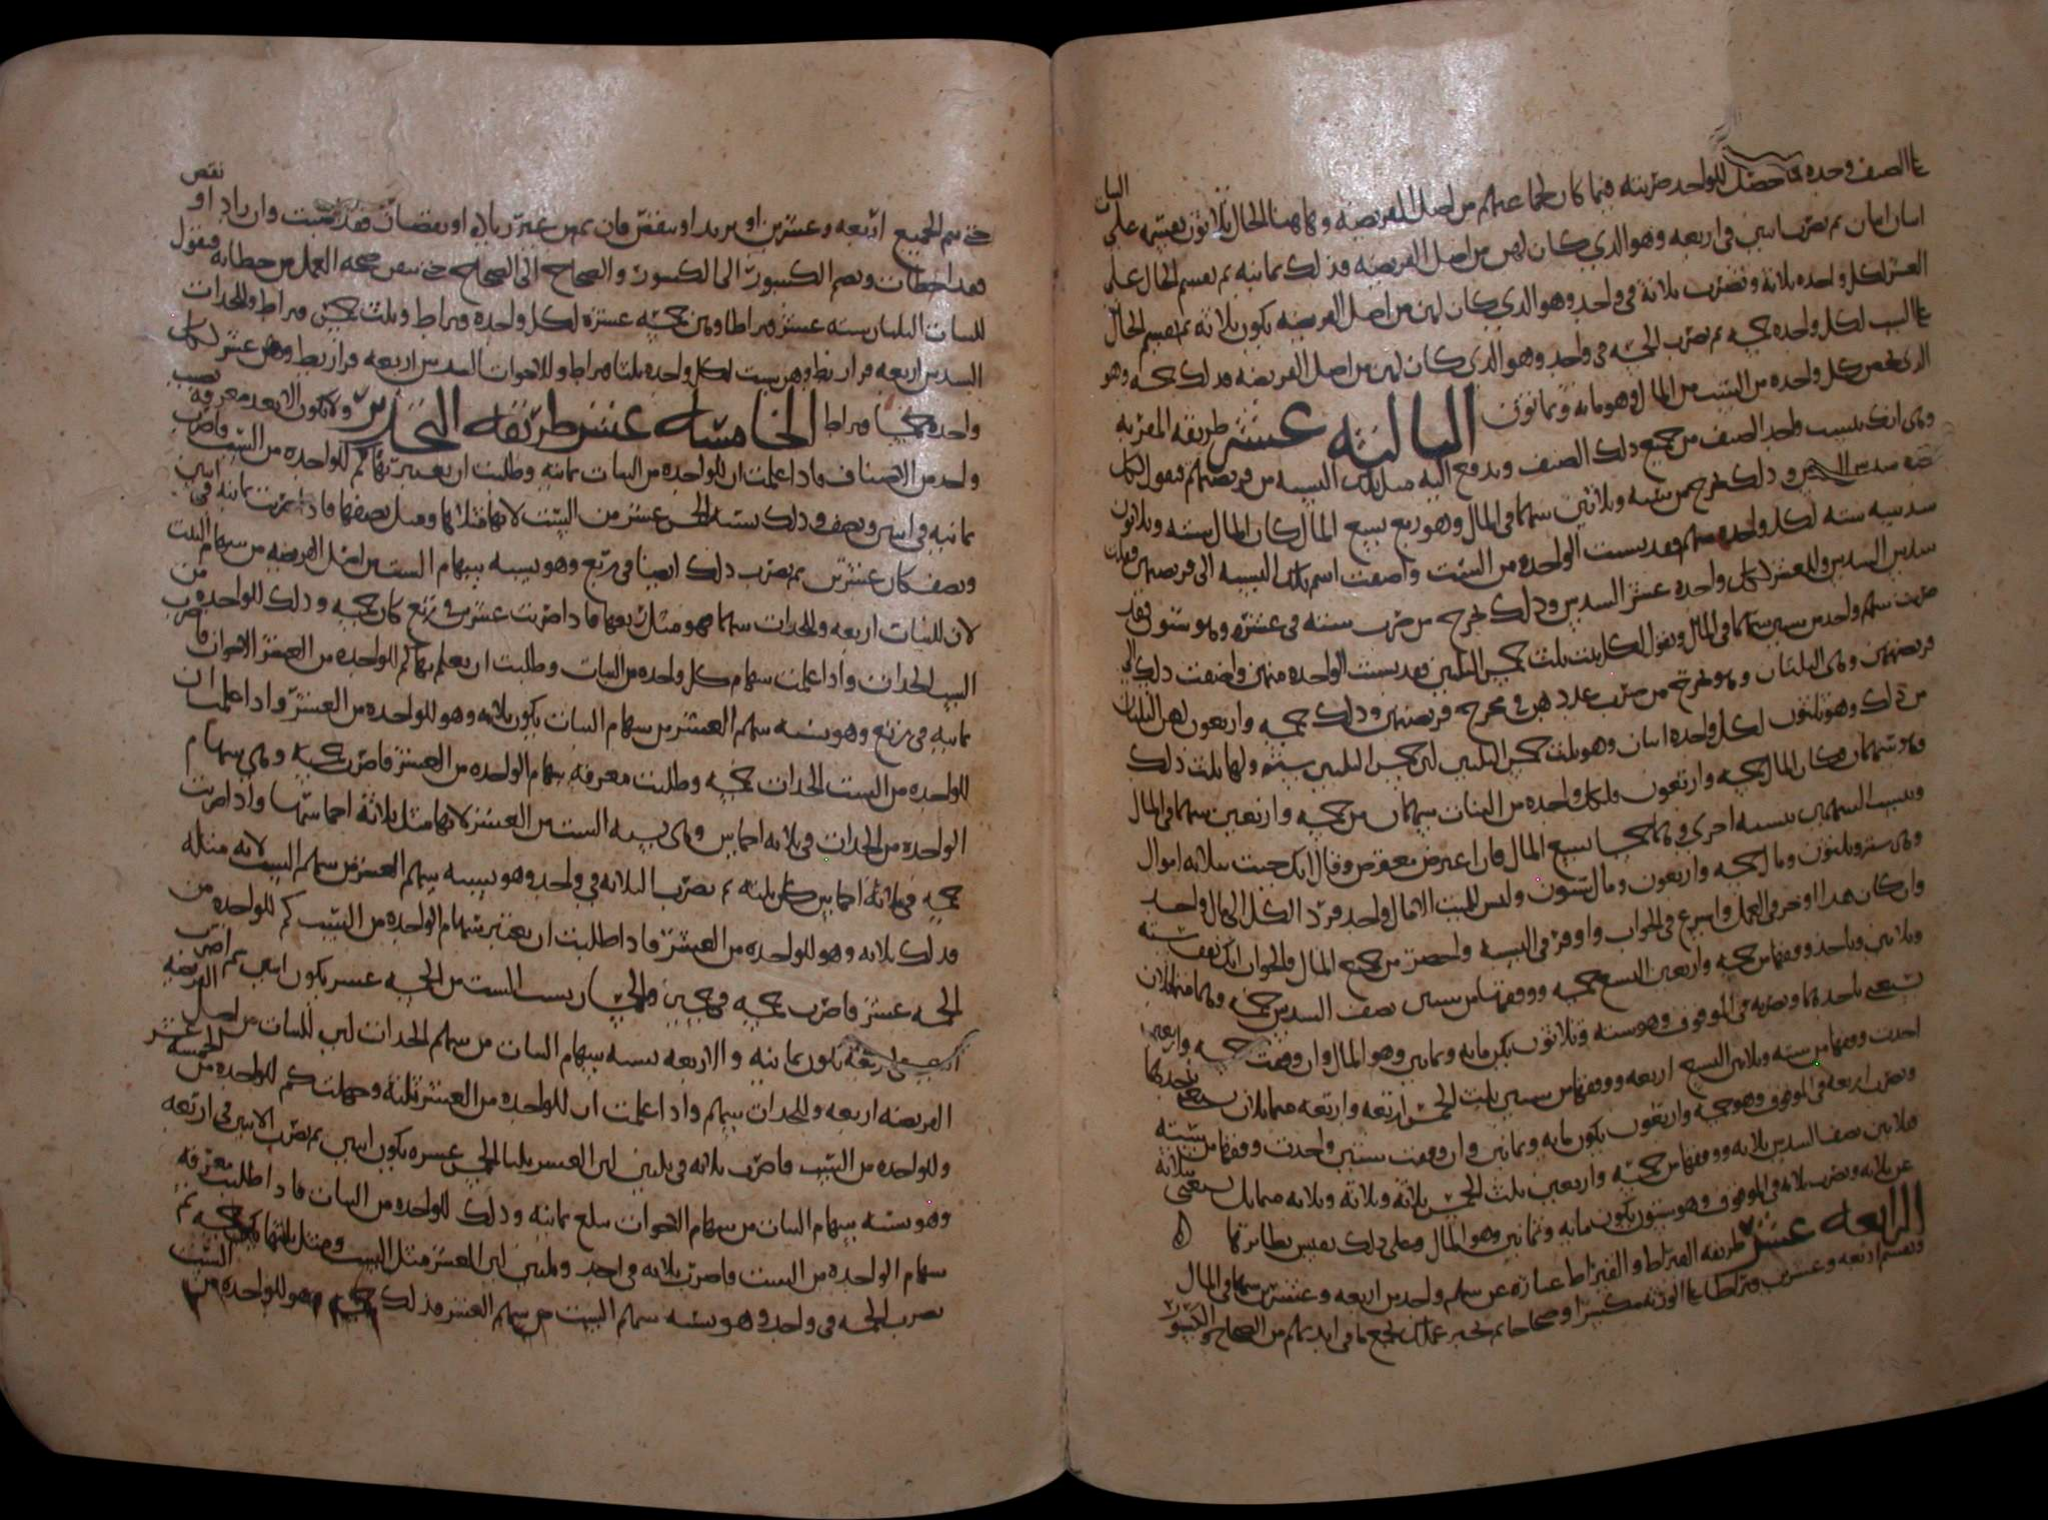 على الصنف وحده فما حصل للواحد ضربته فيما كان لجماعتهم من اصل الفريضه وهاهنا المال ثلاثون يقسم على البنات
اثنان اثنان ثم تضرب اثنين في اربعه وهو الذي كان لهن من اصل الفريضه فذلك ثمانيه ثم يقسم المال على
العشر لكل واحده ثلاثة وتضرب ثلاثة في واحد وهو الذي كان لهن من اصل الفريضه يكون ثلاثة ثم تقسم المال
على الست لكل واحده خمسه ثم تضرب الخمسه في واحد وهو الذي كان لهن من اصل الفريضه فذلك خمسه وهو
الذي يخص كل واحده من الست من المال وهو مايه وثمانون الثالثة عشر طريقه
وهي انك تنسب واحد الصنف من جميع ذلك الصنف وتدفع اليه مثل تلك النسبه من فريضتهم فتقول لكل
جده سدس السدس وذلك يخرج من سته وثلاثين سهما في المال وهو ربع تسع المال كان المال سته وثلاثون
سدسه سته لكل واحده سهم فقد نسبت الواحده من الست واضفت اسم تلك النسبه الى فريضتهن فقلت
سدس السدس وللعشر لكل واحده عشر السدس وذلك يخرج من ضرب سته في عشرة وهو ستون فقد
ضربت سهم واحد من ستين سهما في المال وتقول لكل بنت ثلث خمس الثلثين فقد نسبت الواحده منهن واضفت ذلك الى
فريضتهن وهي الثلثان وهو يخرج من ضرب عدد هن في مخرج فريضتهن وذلك خمسه واربعون لهن الثلثان
من ذلك وهو ثلثون لكل واحده اثنان وهو ثلث خمس الثلثين لان خمس الثلثين سته ولها ثلث ذلك
وهو سهمان فكان المال خمسه واربعون ولكل واحده من البنات سهمان من خمسه واربعين سهما في المال
وتنسب السهمين نسبه اخرى وهما خمسا تسع المال فان اعترض معترض وقال انك جيت بثلاثه اموال
وهي سته وثلثون ومال خمسه واربعون ومال ستون وليس للميت الا مال واحد فرد الكل الى مال واحد
وان كان هذا اوجز في العمل واسرع في الجواب واوفر في النسبه واحصر من جميع المال فالجواب انك تقف سته
وثلاثين وتاخذ ووفقها من خمسه واربعين التسع خمسه ووفقها من ستين نصف السدس خمسه وهما متماثلان
تستغني باحدهما وتضربه في الموقوف وهو سته وثلاثون يكن مايه وثمانين وهو المال وان وقفت خمسه واربعين
اخذت ووفقها من سته وثلاثين التسع اربعه ووفقها من ستين ثلث الخمس اربعه واربعه متماثلان تستغني باحدهما
وتضرب اربعه في الموقوف وهو خمسه واربعون يكون مايه وثمانين وان وقفت ستين واخذت ووفقها من سته
وثلاثين نصف السدس ثلاثه ووفقها من خمسه واربعين ثلث الخمس ثلاثة وثلاثة وثلاثه متماثل تستغني بثلاثة
عن ثلاثه وتضرب ثلاثه في الموقوف وهو ستون يكون مايه وثمانين وهو المال وعلى ذلك تقيس نظايرها
الرابعه عشر طريقه القيراط والقيراط عبارة عن سهم واحد من اربعه وعشرين سهما في المال
وتقسم اربعه وعشرين قيراطا على الورثه مكسرا وصحاحا ثم تختبر عملك بجمع ما في ايديهم من الصحاح والكسور
حتى يتم الجميع اربعه وعشرين او يزيد او ينقص فان تم من غير زياده او نقصان فقد اصبت وان زاد او نقص
فقد اخطات وتضم الكسور الى الكسور والصحاح الى الصحاح حتى تتبين صحه العمل من خطايه فتقول
للبنات الثلثان سته عشر قيراطا وهن خمسه عشره لكل واحده قيراط وثلث خمس قيراط وللجدات
السدس اربعه قراريط وهن ست لكل واحده ثلثا قيراط وللاخوات السدس اربعه قراريط وهن عشر لكل
واحده خمسا قيراط الخامسه عشر طريقه ولا يكون الا بعد معرفه نصيب
واحد من الاصناف فاذا علمت ان للواحده من البنات ثمانيه وطلبت ان تعتبر بها كم للواحده من الست فاضرب
ثمانيه في اثنين ونصف وذلك نسبه الخمس عشر من الست لانها مثلاها ومثل نصفها فاذا ضربت ثمانيه في اثنين
ونصف كان عشرين ثم تضرب ذلك ايضا في ربع وهو نسبه سهام الست من اصل الفريضه من سهام البنات
لان للبنات اربعه وللجدات سهما فهو مثل ربعها فاذا ضربت عشرين في ربع كان خمسه وذلك للواحده من
الست الجدات واذا علمت سهام كل واحده من البنات وطلبت ان تعلم بها كم للواحده من العشر الاخوات فاضرب
ثمانيه في ربع وهو نسبه سهم العشر من سهام البنات يكون ثلاثه وهو للواحده من العشر واذا علمت ان
للواحده من الست الجدات خمسه وطلبت معرفه سهام الواحده من العشر فاضرب خمسه وهي سهام
الواحده من الجدات في ثلاثه اخماس وهي نسبه الست من العشر لانها مثل ثلاثة اخماسها واذا ضربت
خمسه في ثلاثة اخماس كان ثلثه ثم تضرب الثلاثه في واحد وهو نسبه سهم العشر من سهم الست لانه مثله
فذلك ثلاثه وهو للواحده من العشر فاذا طلبت ان تعتبر سهام الواحده من الست كم للواحده من
الخمسه عشر فاضرب خمسه في خمسين نسبه الست من الخمسه عشر يكون اثنين ثم اضرب
اثنين في اربعة يكون ثمانيه والاربعه نسبه سهام البنات من سهم الجدات لان للبنات من اصل الفريضه
الفريضه اربعه وللجدات سهم واذا علمت ان للواحده من العشر ثلثة وجهلت كم للواحده من الخمسه عشر
وللواحده من الست فاضرب ثلاثه في ثلثين لان العشر ثلثا الخمس عشره يكون اثنين ثم تضرب الاثنين في اربعه
وهو نسبه سهام البنات من سهام الاخوات تبلغ ثمانيه وذلك للواحده من البنات فاذا طلبت معرفه
سهام الواحده من الست فاضرب ثلاثه في واحد وثلثين لان العشر مثل الست ومثل ثلثيها يكن خمسه ثم
تضرب الخمسه في واحد وهو نسبه سهم الست من سهم العشر فذلك خمسه وهو للواحده من الست